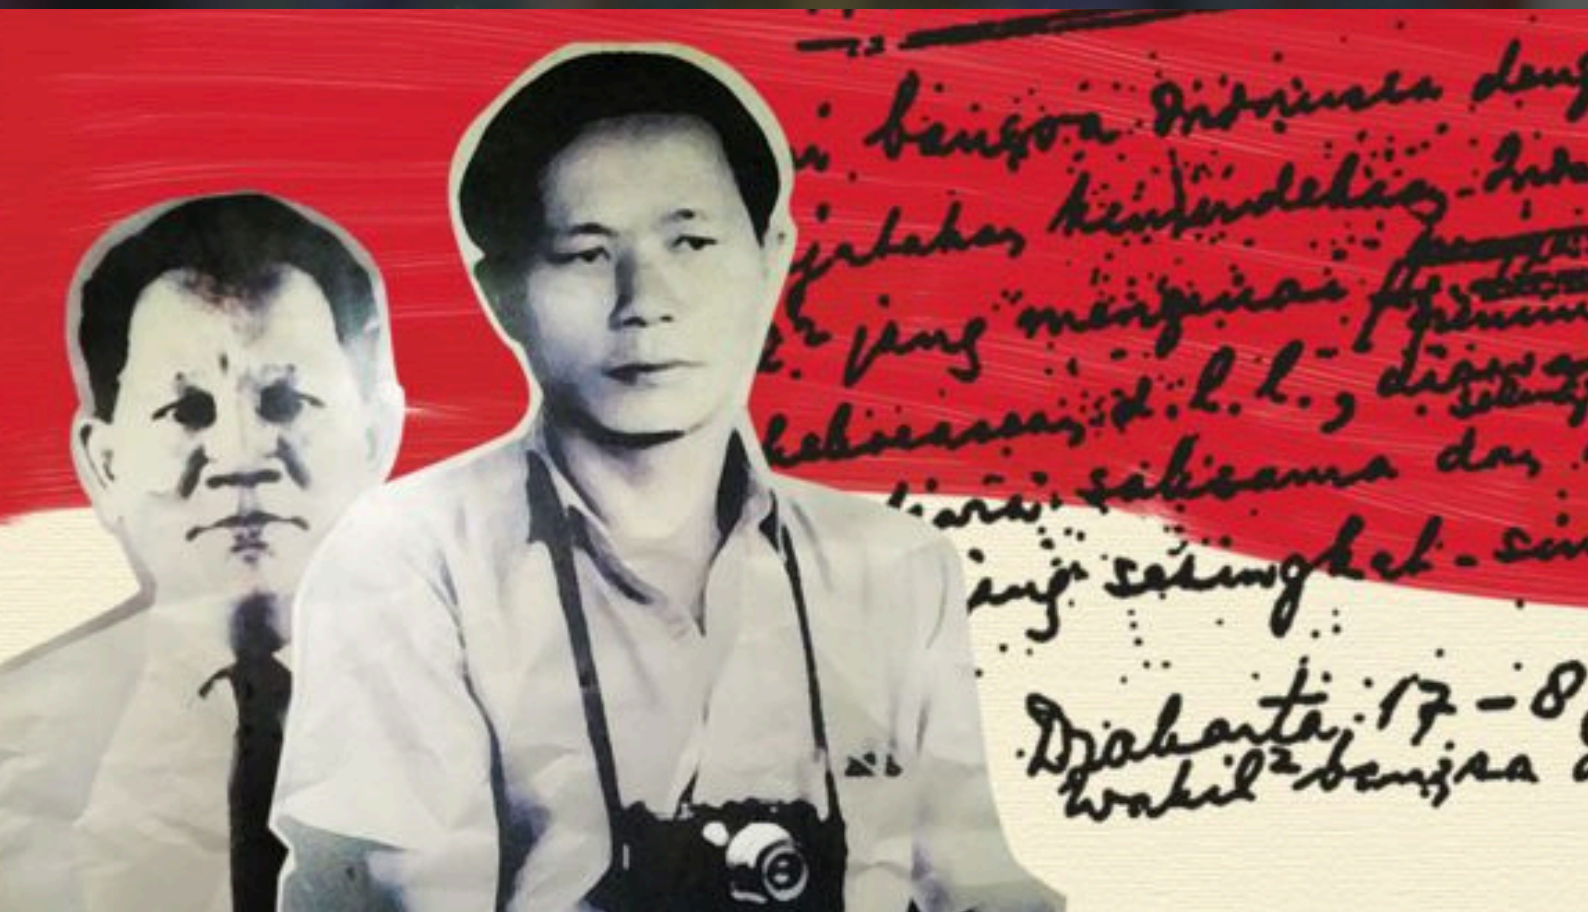 bangsa Indonesia deng
jatakan kemerdekaan Indo
jang mengenai
kekoeasaan, d.l.l.,
tjara saksama dan
jang sesingkat-sin
Djakarta, 17-8
wakil2 bangsa